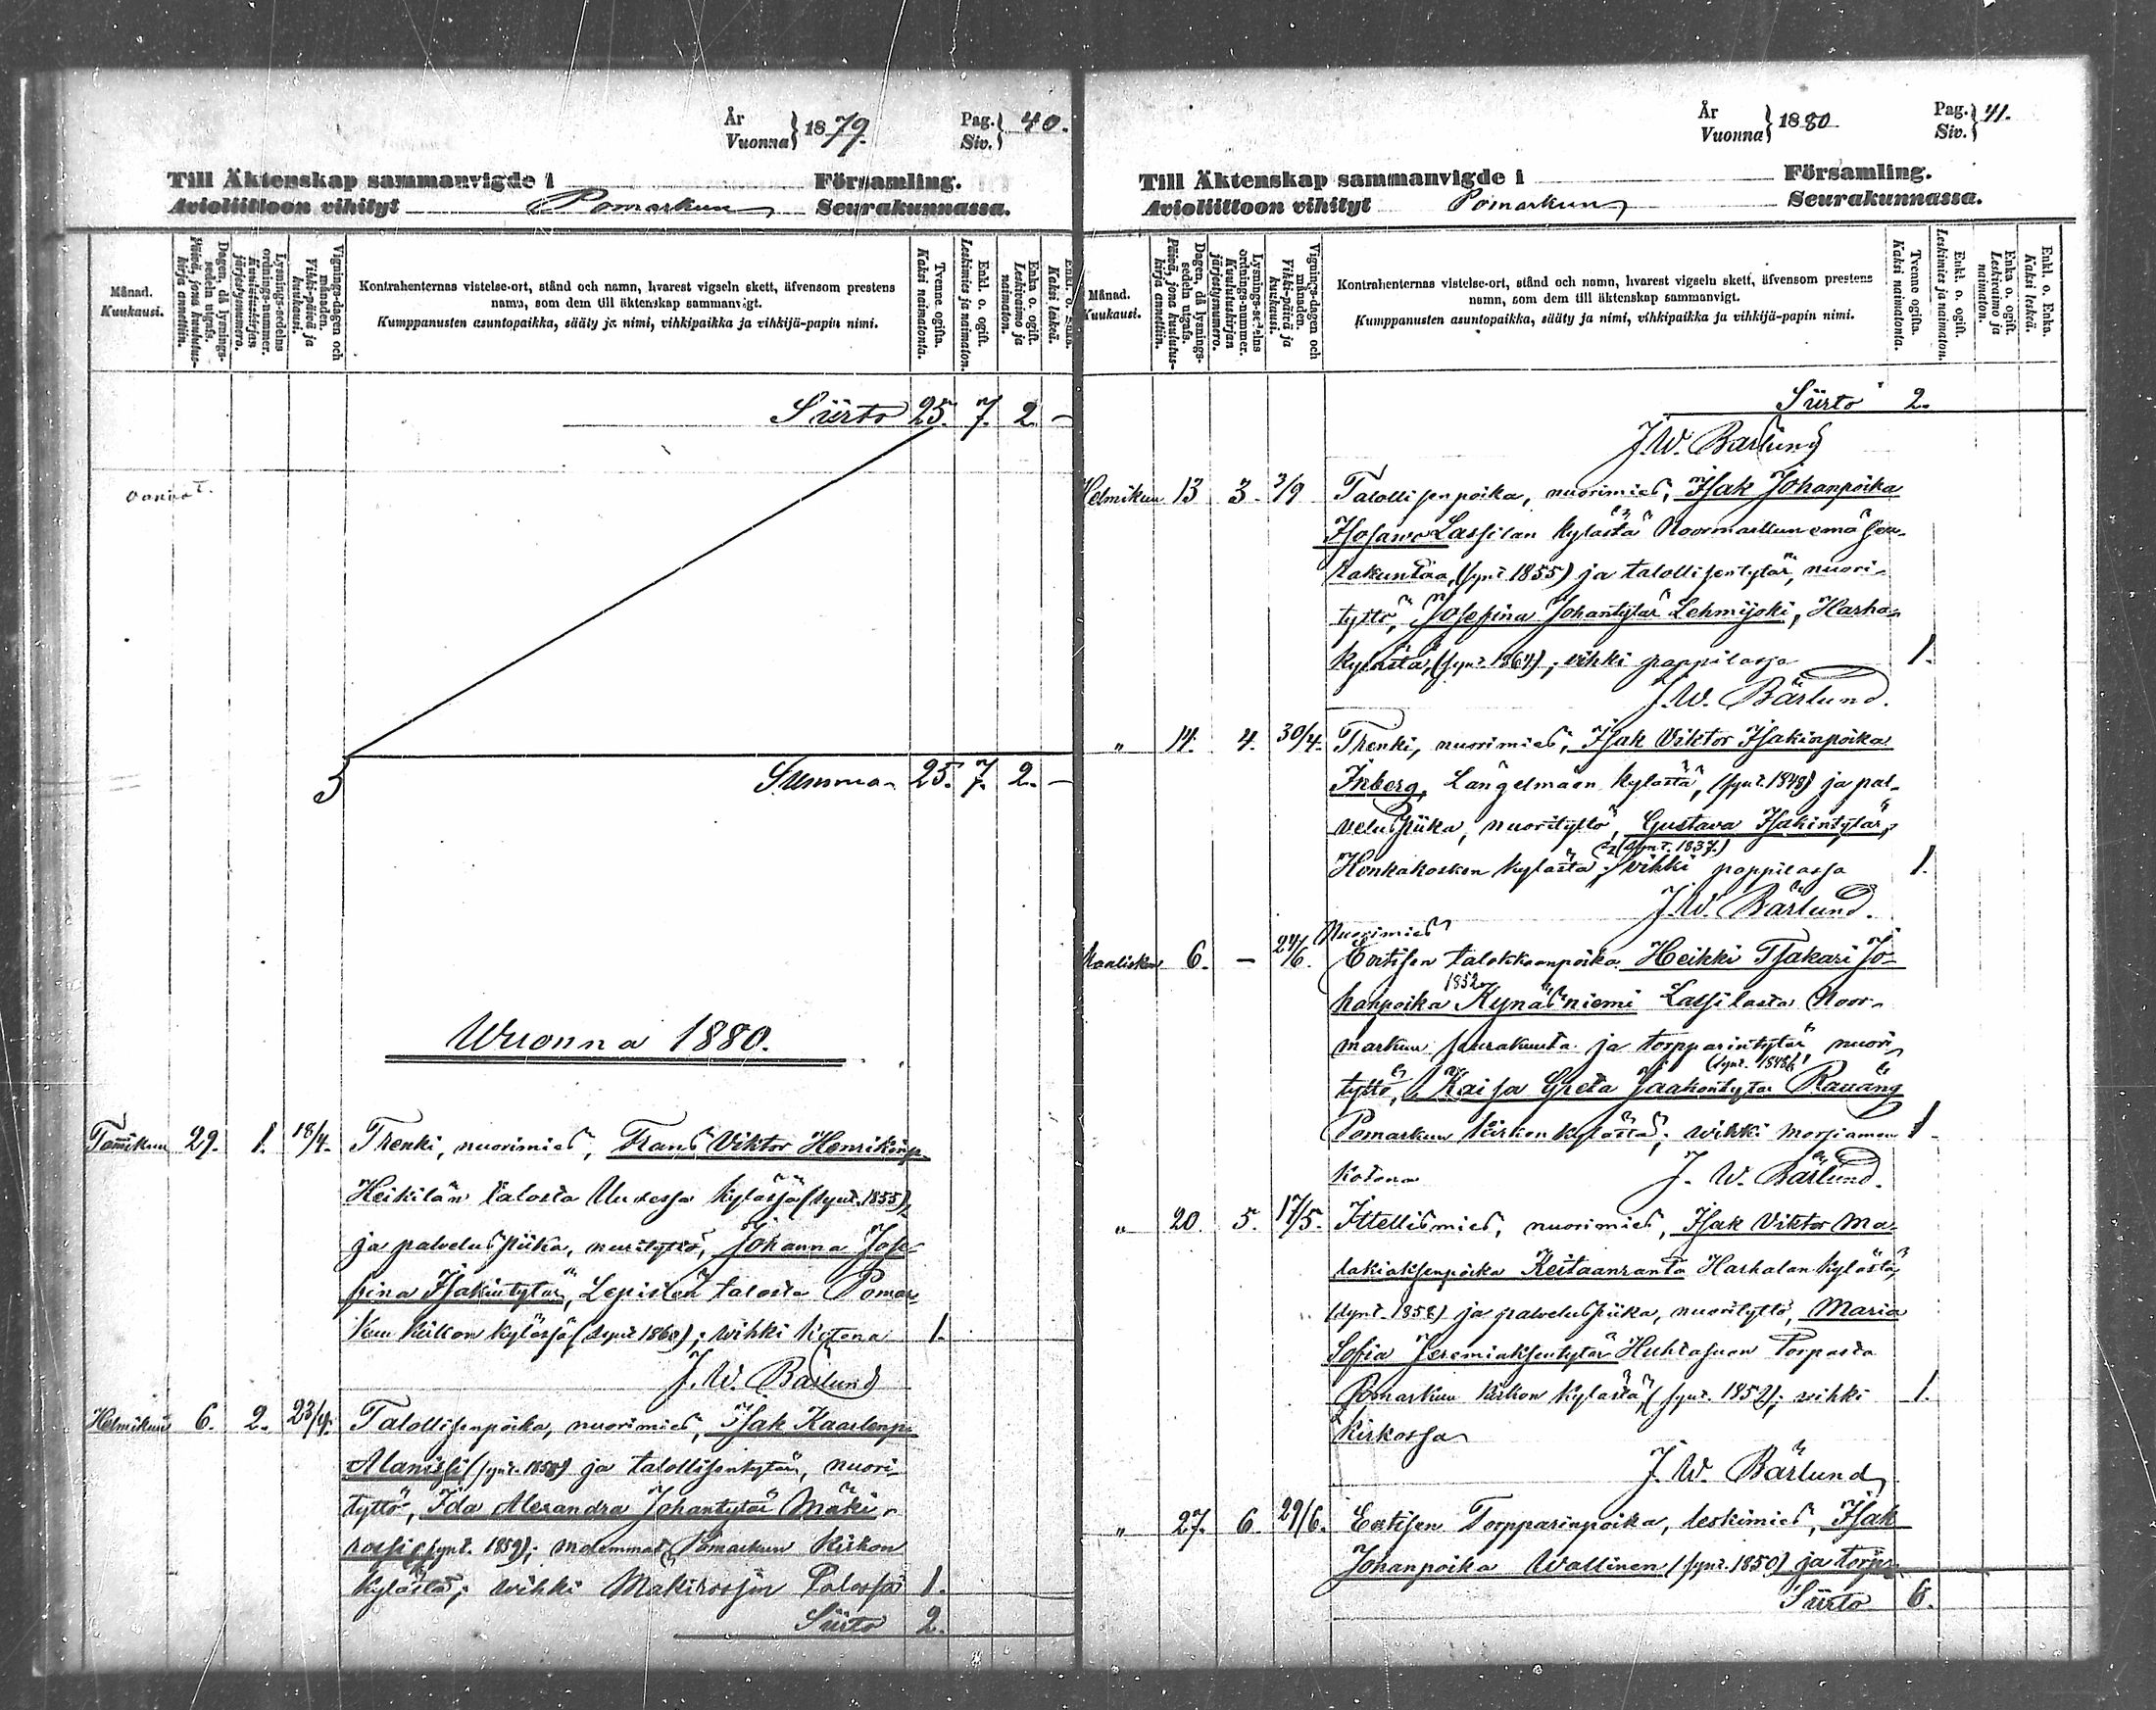 År
Vuonna } 1879.
Pag.
Siv. } 40.
Till Äktenskap sammanvigde i Församling.
Avioliittoon vihityt Pomarkun Seurakunnassa.
Månad.
Kuukausi.
Dagen, då lysnings-
sedeln utgafs.
Päivä, jona kuulutus-
kirja annettiin.
Lysnings-sedelns
ordnings-nummer.
Kuulutuskirjan
järjestysnumero.
Vignings-dagen och
månaden.
Vihki-päivä ja
kuukausi.
Kontrahenternas vistelse-ort, stånd och namn, hvarest vigseln skett, äfvensom prestens
namn, som dem till äktenskap sammanvigt.
Kumppanusten asuntopaikka, sääty ja nimi, vihkipaikka ja vihkijä-papin nimi.
Tvenne ogifta.
Kaksi naimatonta.
Enkl. o. ogift.
Leskimies ja naimaton.
Enka o. ogift.
Leskivaimo ja
naimaton.
Enkl. o. Enka.
Kaksi leskeä.
Siirto 25. 7. 2. –
Summa 25. 7. 2. –
Wuonna 1880.
Tammikuu 29. 1. 18/4. Trenki, nuorimies, Frans Viktor Henrikinp.
Heikilän talosta Uudessa kylässä (synt. 1855),
ja palveluspiika, nuorityttö, Johanna Jose-
fina Isakintytär, Lepistön talosta Pomar-
kun kirkon kylässä (synt. 1860); vihki kotona 1.
J. W. Bärlund
Helmikuu 6. 2. 23/4. Talollisenpoika, nuorimies, Isak Kaarlenp.
Alanissi (synt. 1858) ja talollisentytär, nuori-
tyttö, Ida Alexandra Johantytär Mäki-
rossi (synt. 1859); molemmat Pomarkun kirkon
kylästä; vihki Mäkirossin talossa 1.
Siirto 2.
År
Vuonna } 1880
Pag.
Siv. } 41.
Till Äktenskap sammanvigde i Församling.
Avioliittoon vihityt Pomarkun Seurakunnassa.
Månad.
Kuukausi.
Dagen, då lysnings-
sedeln utgafs.
Päivä, jona kuulutus-
kirja annettiin.
Lysnings-sedelns
ordnings-nummer.
Kuulutuskirjan
järjestysnumero.
Vignings-dagen och
månaden.
Vihki-päivä ja
kuukausi.
Kontrahenternas vistelse-ort, stånd och namn, hvarest vigseln skett, äfvensom prestens
namn, som dem till äktenskap sammanvigt.
Kumppanusten asuntopaikka, sääty ja nimi, vihkipaikka ja vihkijä-papin nimi.
Tvenne ogifta.
Kaksi naimatonta.
Enkl. o. ogift.
Leskimies ja naimaton.
Enka o. ogift.
Leskivaimo ja
naimaton.
Enkl. o. Enka.
Kaksi leskeä.
Siirto 2.
J. W. Bärlund
Helmikuu 13 3. 3/9 Talollisenpoika, nuorimies, Isak Johanpoika
Isosawo Lassilan kylästä Noormarkun emäseu-
rakuntaa, (synt. 1855) ja talollisentytär, nuori-
tyttö, Josefina Johantytär Lehmijoki, Harha-
kylästä, (synt. 1864); vihki pappilassa 1.
J. W. Bärlund.
" 14. 4. 30/4. Trenki, nuorimies, Isak Viktor Isakinpoika
Inberg, Längelmäen kylästä, (synt. 1848) ja pal-
veluspiika, nuorityttö, Gustava Isakintytär,
(synt. 1837.)
Honkakosken kylästä; vihki pappilassa 1.
J. W. Bärlund.
Nuorimies
Maaliskuu 6. – 24/6. Entisen talokkaanpoika Heikki Isakari Jo-
1852
hanpoika Kynäsniemi Lassilasta Noor-
markun seurakunta ja torpparintytär nuori
(synt. 1848)
tyttö, Kaisa Greta Jaakontytär Rauäng
Pomarkun kirkon kylästä; vihki morsiamen 1.
kotona J. W. Bärlund.
" 20. 5. 17/5. Ittellismies, nuorimies, Isak Viktor Ma-
lakiaksenpoika Keitaanranta Harhalan kylästä,
(synt. 1858) ja palveluspiika, nuorityttö, Maria
Sofia Jeremiaksentytär Huhtasuon torpasta
Pomarkun kirkon kylästä, (synt. 1852); vihki 1.
kirkossa
J. W. Bärlund
" 27. 6. 29/6. Entisen Torpparinpoika, leskimies, Isak
Johanpoika Wallinen (synt. 1850) ja torp-
Siirto 6.